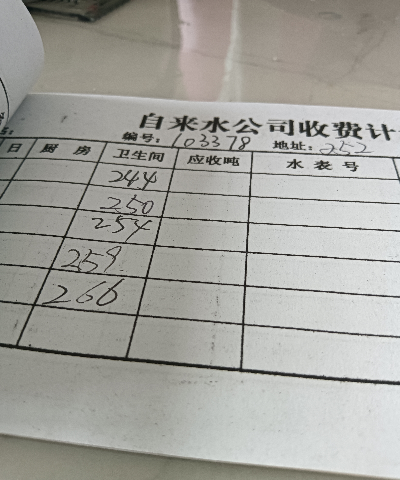 自来水公司收费计
编号: 103378 地址: 252
日 厨 房 卫生间 应收吨 水 表 号
244
250
254
259
266